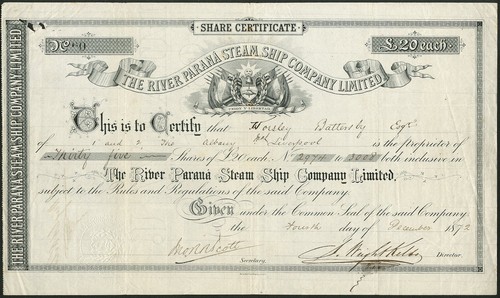 SHARE CERTIFICATE
£20 each
THE RIVER PARANA STEAM SHIP COMPANY LIMITED
This is to Certify that Worsley Battersby Esqr.
of 1 and 2 The Albany Liverpool is the proprietor of
Thirty five Shares of £20 each, No. 2974 to 3008 both inclusive in
The River Paraná Steam Ship Company Limited,
subject to the Rules and Regulations of the said Company.
Given under the Common Seal of the said Company
the Fourth day of December 1872
Secretary.
Director.
THE RIVER PARANA STEAM SHIP COMPANY LIMITED